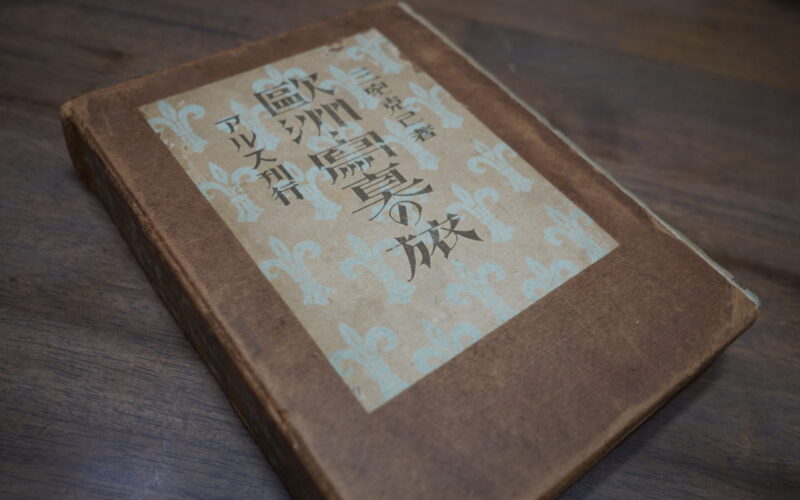 三宅克己著
歐洲寫眞の旅
アルス刊行